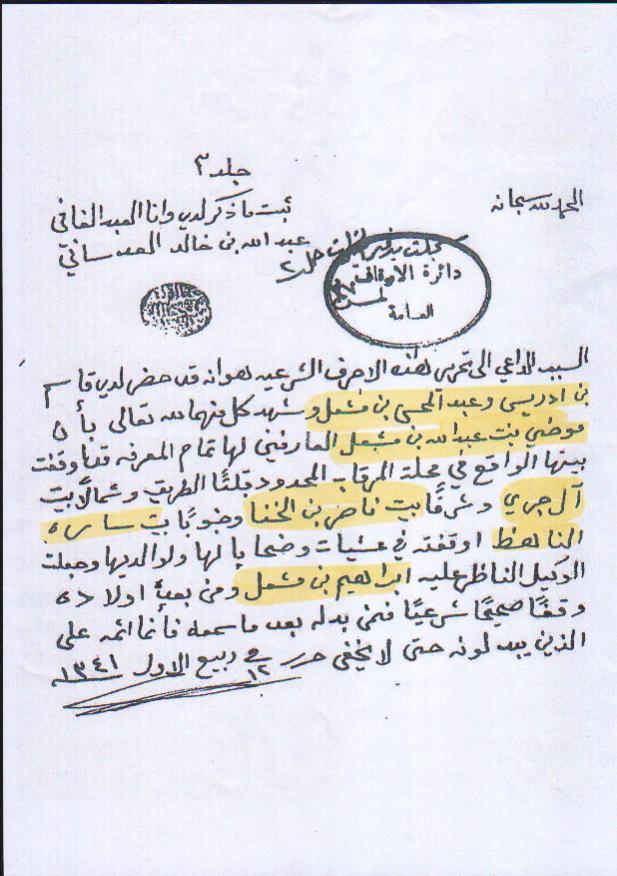 جلد ٣
الحمد لله سبحانه
ثبت ما ذكر لدي وانا العبد الفاني
عبد الله بن خالد العدساني
دائرة الاوقاف
العامة
السبب الداعي الى تحرير هذه الاحرف الشرعيه هو انه قد حضر لدي قاسم
بن ادريس وعبد المحسن بن مشعل وشهد كل منهما لله تعالى بأن
موضي بنت عبدالله بن مشعل العارفين لها تمام المعرفه قد اوقفت
بيتها الواقع في محلة المرقاب المحدود قبلتًا الطريق وشمالًا بيت
آل جري وشرقًا بيت ناصر بن الخنا وجنوبًا بيت ساره
الناهض اوقفته في عشيات وضحايا لها ولوالديها وجعلت
الوكيل الناظر عليه ابراهيم بن مشعل ومن بعده اولاده
وقفًا صحيحًا شرعيًا فمن بدله بعد ما سمعه فأنما اثمه على
الذين يبدلونه حتى لا يخفى حرر في ١٢ ربيع الاول ١٣٤١